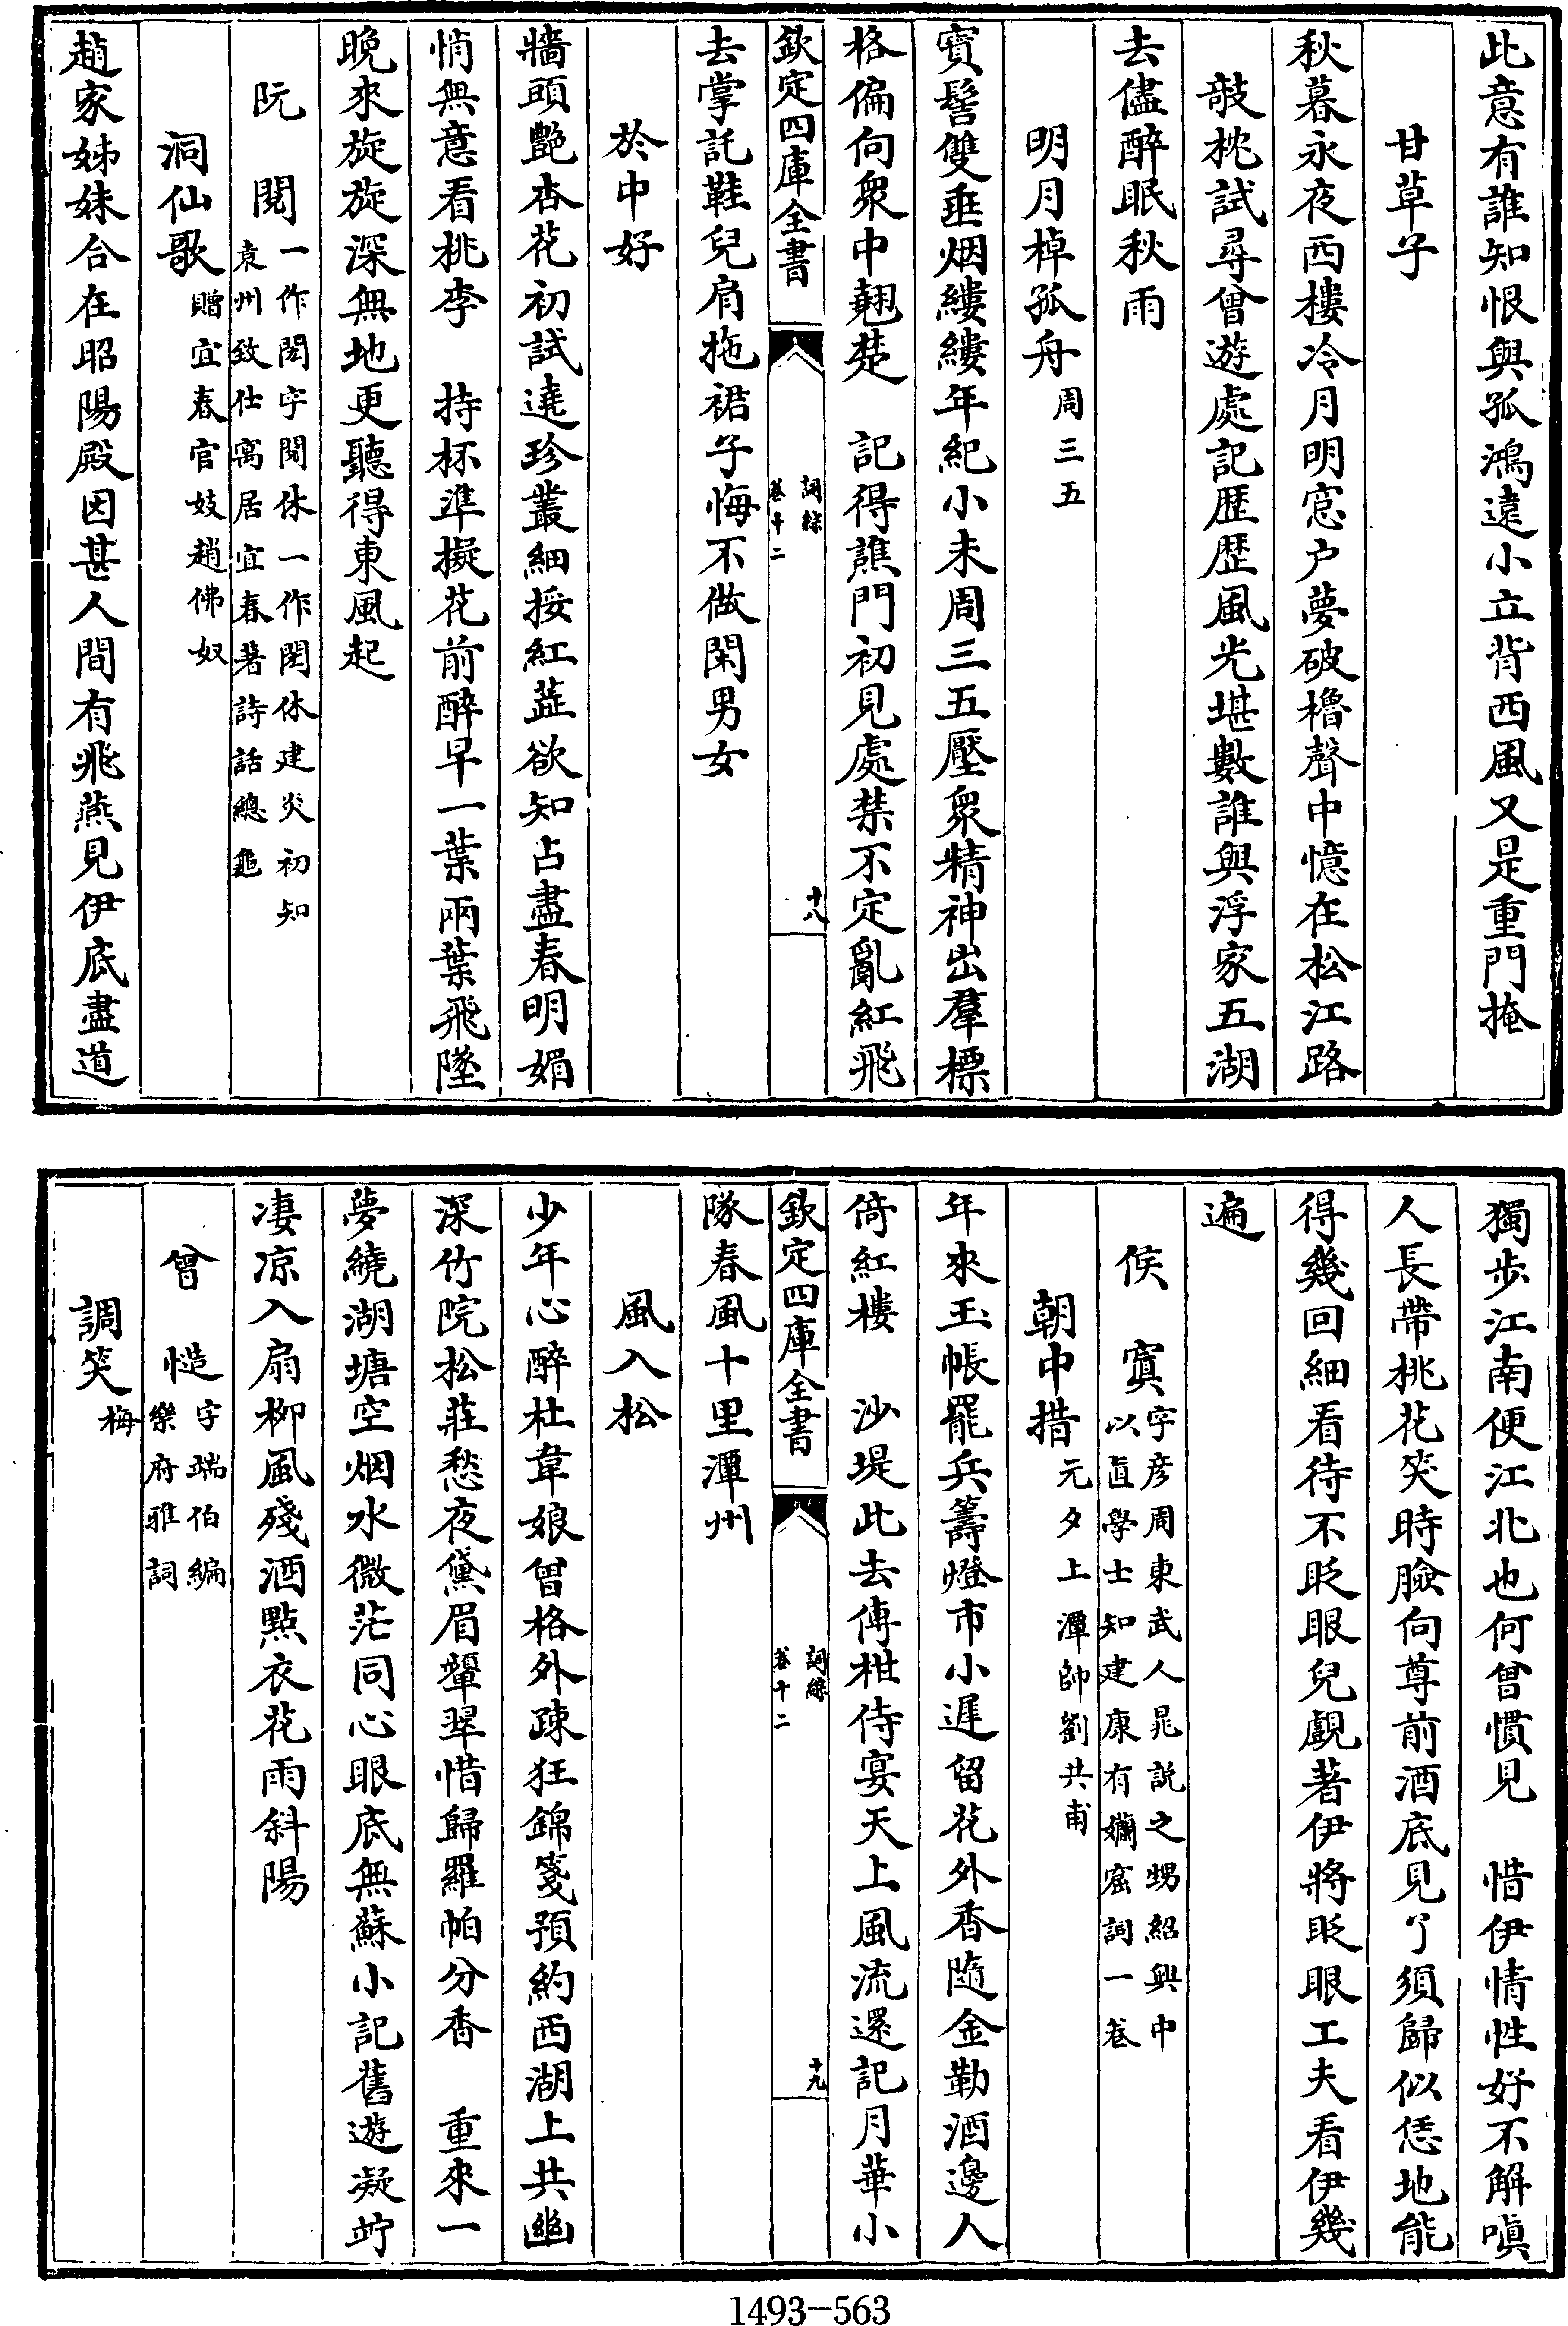 此意有誰知恨與孤鴻遠小立背西風又是重門掩
甘草子
秋暮永夜西樓冷月明窓户夢破櫓聲中憶在松江路
敧枕試尋曾遊處記歴歴風光堪數誰與浮家五湖
去儘醉眠秋雨
明月棹孤舟周三五
寳髻雙垂烟縷縷年紀小未周三五壓衆精神出羣標
格偏向衆中翹楚　記得譙門初見處禁不定亂紅飛
欽定四庫全書
詞綜
卷十二
十八
去掌託鞋兒肩拖裙子悔不做閑男女
於中好
牆頭艷杏花初試遶珍叢細挼紅蘂欲知占盡春明媚
悄無意看桃李　持杯凖擬花前醉早一葉兩葉飛墜
晩來旋旋深無地更聽得東風起
阮　閲
一作閎字閲休一作閎休建炎初知
袁州致仕寓居宜春著詩話總龜
洞仙歌贈宜春官妓趙佛奴
趙家姊妹合在昭陽殿因甚人間有飛燕見伊底盡道
獨步江南便江北也何曾慣見　惜伊情性好不解嗔
人長帶桃花笑時臉向尊前酒底見了須歸似恁地能
得幾回細看待不眨眼兒覷著伊將眨眼工夫看伊幾
遍
侯　寘
字彦周東武人晁説之甥紹興中
以直學士知建康有孏窟詞一卷
朝中措元夕上潭帥劉共甫
年來玉帳罷兵籌燈市小遲留花外香隨金勒酒邊人
倚紅樓　沙堤此去傳柑侍宴天上風流還記月華小
欽定四庫全書
詞綜
卷十二
十九
隊春風十里潭州
風入松
少年心醉杜韋娘曾格外疎狂錦箋預約西湖上共幽
深竹院松莊愁夜黛眉顰翠惜歸羅帕分香　重來一
夢繞湖塘空烟水微茫同心眼底無蘇小記舊遊凝竚
凄凉入扇柳風殘酒點衣花雨斜陽
曾　慥
字端伯編
樂府雅詞
調笑梅
1493-563